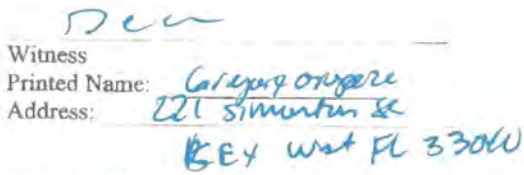 Witness
Printed Name: Gregory
Address: 221 Simonton St
KEY West FL 33040